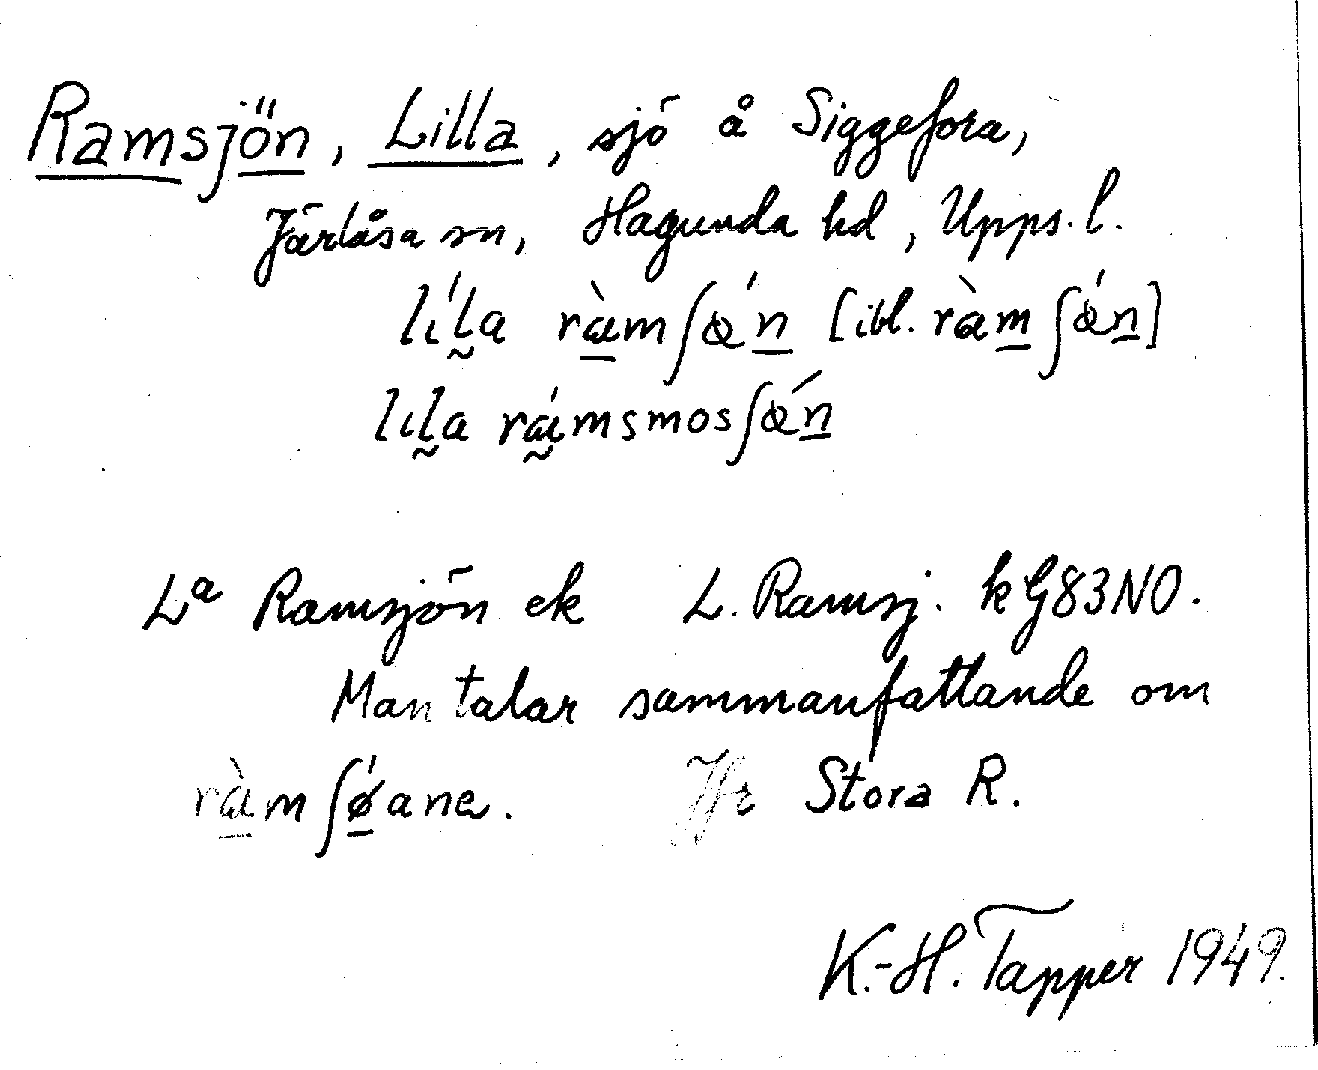 Ramsjön, Lilla, sjö å Siggefora,
Järlåsa sn, Hagunda hd, Upps. l.
lı́l̰a ràm̱ʃǿṉ [ibl. ràm̱ʃǿṉ]
lıl̰a rá̰msmosʃǿṉ
La Ramsjön ek L. Ramsj. kG83NO.
Man talar sammanfattande om
ràmʃǿane. Jfr Stora R.
K.-H. Tapper 1949.